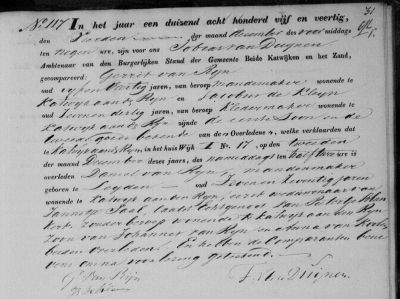 No. 117 In het jaar een duizend acht honderd vijf en veertig, 31
den derden der maand December des voormiddags
ten negen ure, zijn voor ons Tobias van Duijnen
Ambtenaar van den Burgerlijken Stand der Gemeente Beide Katwijken en het Zand,
gecompareerd: Gerrit van Rijn
oud veertig jaren, van beroep mandemaker wonende te
Katwijk aan den Rijn en Jacobus de Kleijn
oud jaren, van beroep Kledermaker wonende te
Katwijk aan den Rijn zijnde de eerste Zoon en de
tweede goede bekende van de Overledene, welke verklaarden dat
te Katwijk aan den Rijn, in het huis Wijk I No. 17, op den tweeden
der maand December dezes jaars, des namiddags ten half ure is
overleden Daniel van Rijn, mandemaker
geboren te Leyden oud zeventig jaren
wonende te Katwijk aan den Rijn, eerst weduwenaar van
Jannetje laatst echtgenoot van Pieternella
zonder beroep wonende te Katwijk aan den Rijn
Zoon van Johannes van Rijn en Anna van
beiden overleden. En hebben de Comparanten deze
nevens ons na voorlezing getekend.
G. van Rijn
T. van Duijnen